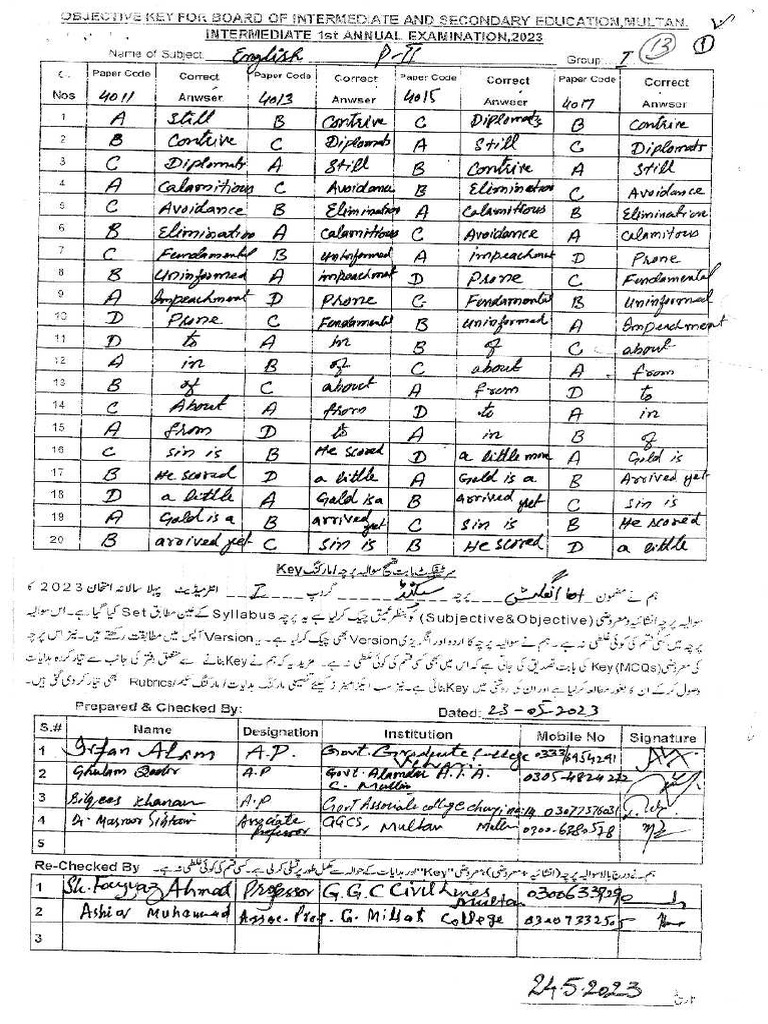 OBJECTIVE KEY FOR BOARD OF INTERMEDIATE AND SECONDARY EDUCATION, MULTAN.
INTERMEDIATE 1st ANNUAL EXAMINATION, 2023
13 1
Name of Subject English P-II Group I
Paper Code Correct Paper Code Correct Paper Code Correct Paper Code Correct
Nos 4011 Anwser 4013 Anwser 4015 Anwser 4017 Anwser
1 A Still B Contrive C Diplomats B Contrive
2 B Contrive C Diplomats A Still C Diplomats
3 C Diplomats A Still B Contrive A Still
4 A Calamitious C Avoidance B Elimination C Avoidance
5 C Avoidance B Elimination A Calamitious B Elimination
6 B Elimination A Calamitious C Avoidance A Calamitous
7 C Fundamental B Uninformed A impeachment D Prone
8 B Uninformed A impeachment D Prone C Fundamental
9 A Impeachment D Prone C Fundamental B Uninformed
10 D Prone C Fundamental B Uninformed A Impeachment
11 D to A in B of C about
12 A in B of C about A from
13 B of C about A from D to
14 C About A from D to A in
15 A from D to A in B of
16 C Sin is B He scored D a little more A Gold is
17 B He scored D a little A Gold is a B Arrived yet
18 D a little A Gold is a B arrived yet C Sin is
19 A Gold is a B arrived yet C Sin is B He scored
20 B arrived yet C Sin is B He scored D a little
سرٹیفکیٹ بابت تصحیح سوالیہ پرچہ / مارکنگ Key
ہم نے مضمون انگلش پرچہ سیکنڈ گروپ I انٹرمیڈیٹ پہلا سالانہ امتحان 2023 کا
سوالیہ پرچہ انشائیہ و معروضی (Subjective & Objective) کو بنظر عمیق چیک کر لیا ہے یہ پرچہ Syllabus کے عین مطابق Set کیا گیا ہے۔ اس سوالیہ
پرچہ میں کسی قسم کی کوئی غلطی نہ ہے۔ ہم نے سوالیہ پرچہ کا اردو اور انگریزی Version بھی چیک کر لیا ہے۔ یہ Version آپس میں مطابقت رکھتے ہیں۔ نیز اس پرچہ
کی معروضی (MCQs) Key کی بابت تصدیق کی جاتی ہے کہ اس میں بھی کسی قسم کی کوئی غلطی نہ ہے۔ مزید یہ کہ ہم نے Key بنانے سے متعلق دفتر کی جانب سے تیار کردہ ہدایات
وصول کر کے ان کا بغور مطالعہ کر لیا ہے اور ان کی روشنی میں Key بنائی ہے۔ نیز سب ایگزامینرز کیلئے تفصیلی مارکنگ ہدایات / مارکنگ سکیم / Rubrics بھی تیار کر دی گئی ہیں۔
Prepared & Checked By: Dated: 23-05-2023
S.# Name Designation Institution Mobile No Signature
1 Irfan Alam A.P. Govt. Graduate College Vehari 0333/6954291
2 Ghulam Qadir A.P Govt. Alamdar C. Multan 0305-4824272
3 Bilqees Khanan A.P Govt Associate college 0307757603
4 Dr. Masroor Associate Professor GGCS, Multan 0300-6380578
5
Re-Checked By ہم نے مندرجہ بالا سوالیہ پرچہ (انشائیہ + معروضی) معروضی "Key" اور ہدایات کے حوالہ سے مکمل طور پر تسلی کر لی ہے۔ کسی قسم کی کوئی غلطی نہ ہے۔
1 Sh. Fayyaz Ahmad Professor G.G.C Civil Lines Multan 0300633
2 Muhammad Assoc. Prof G. Millat College 03007332505
3
24.5.2023